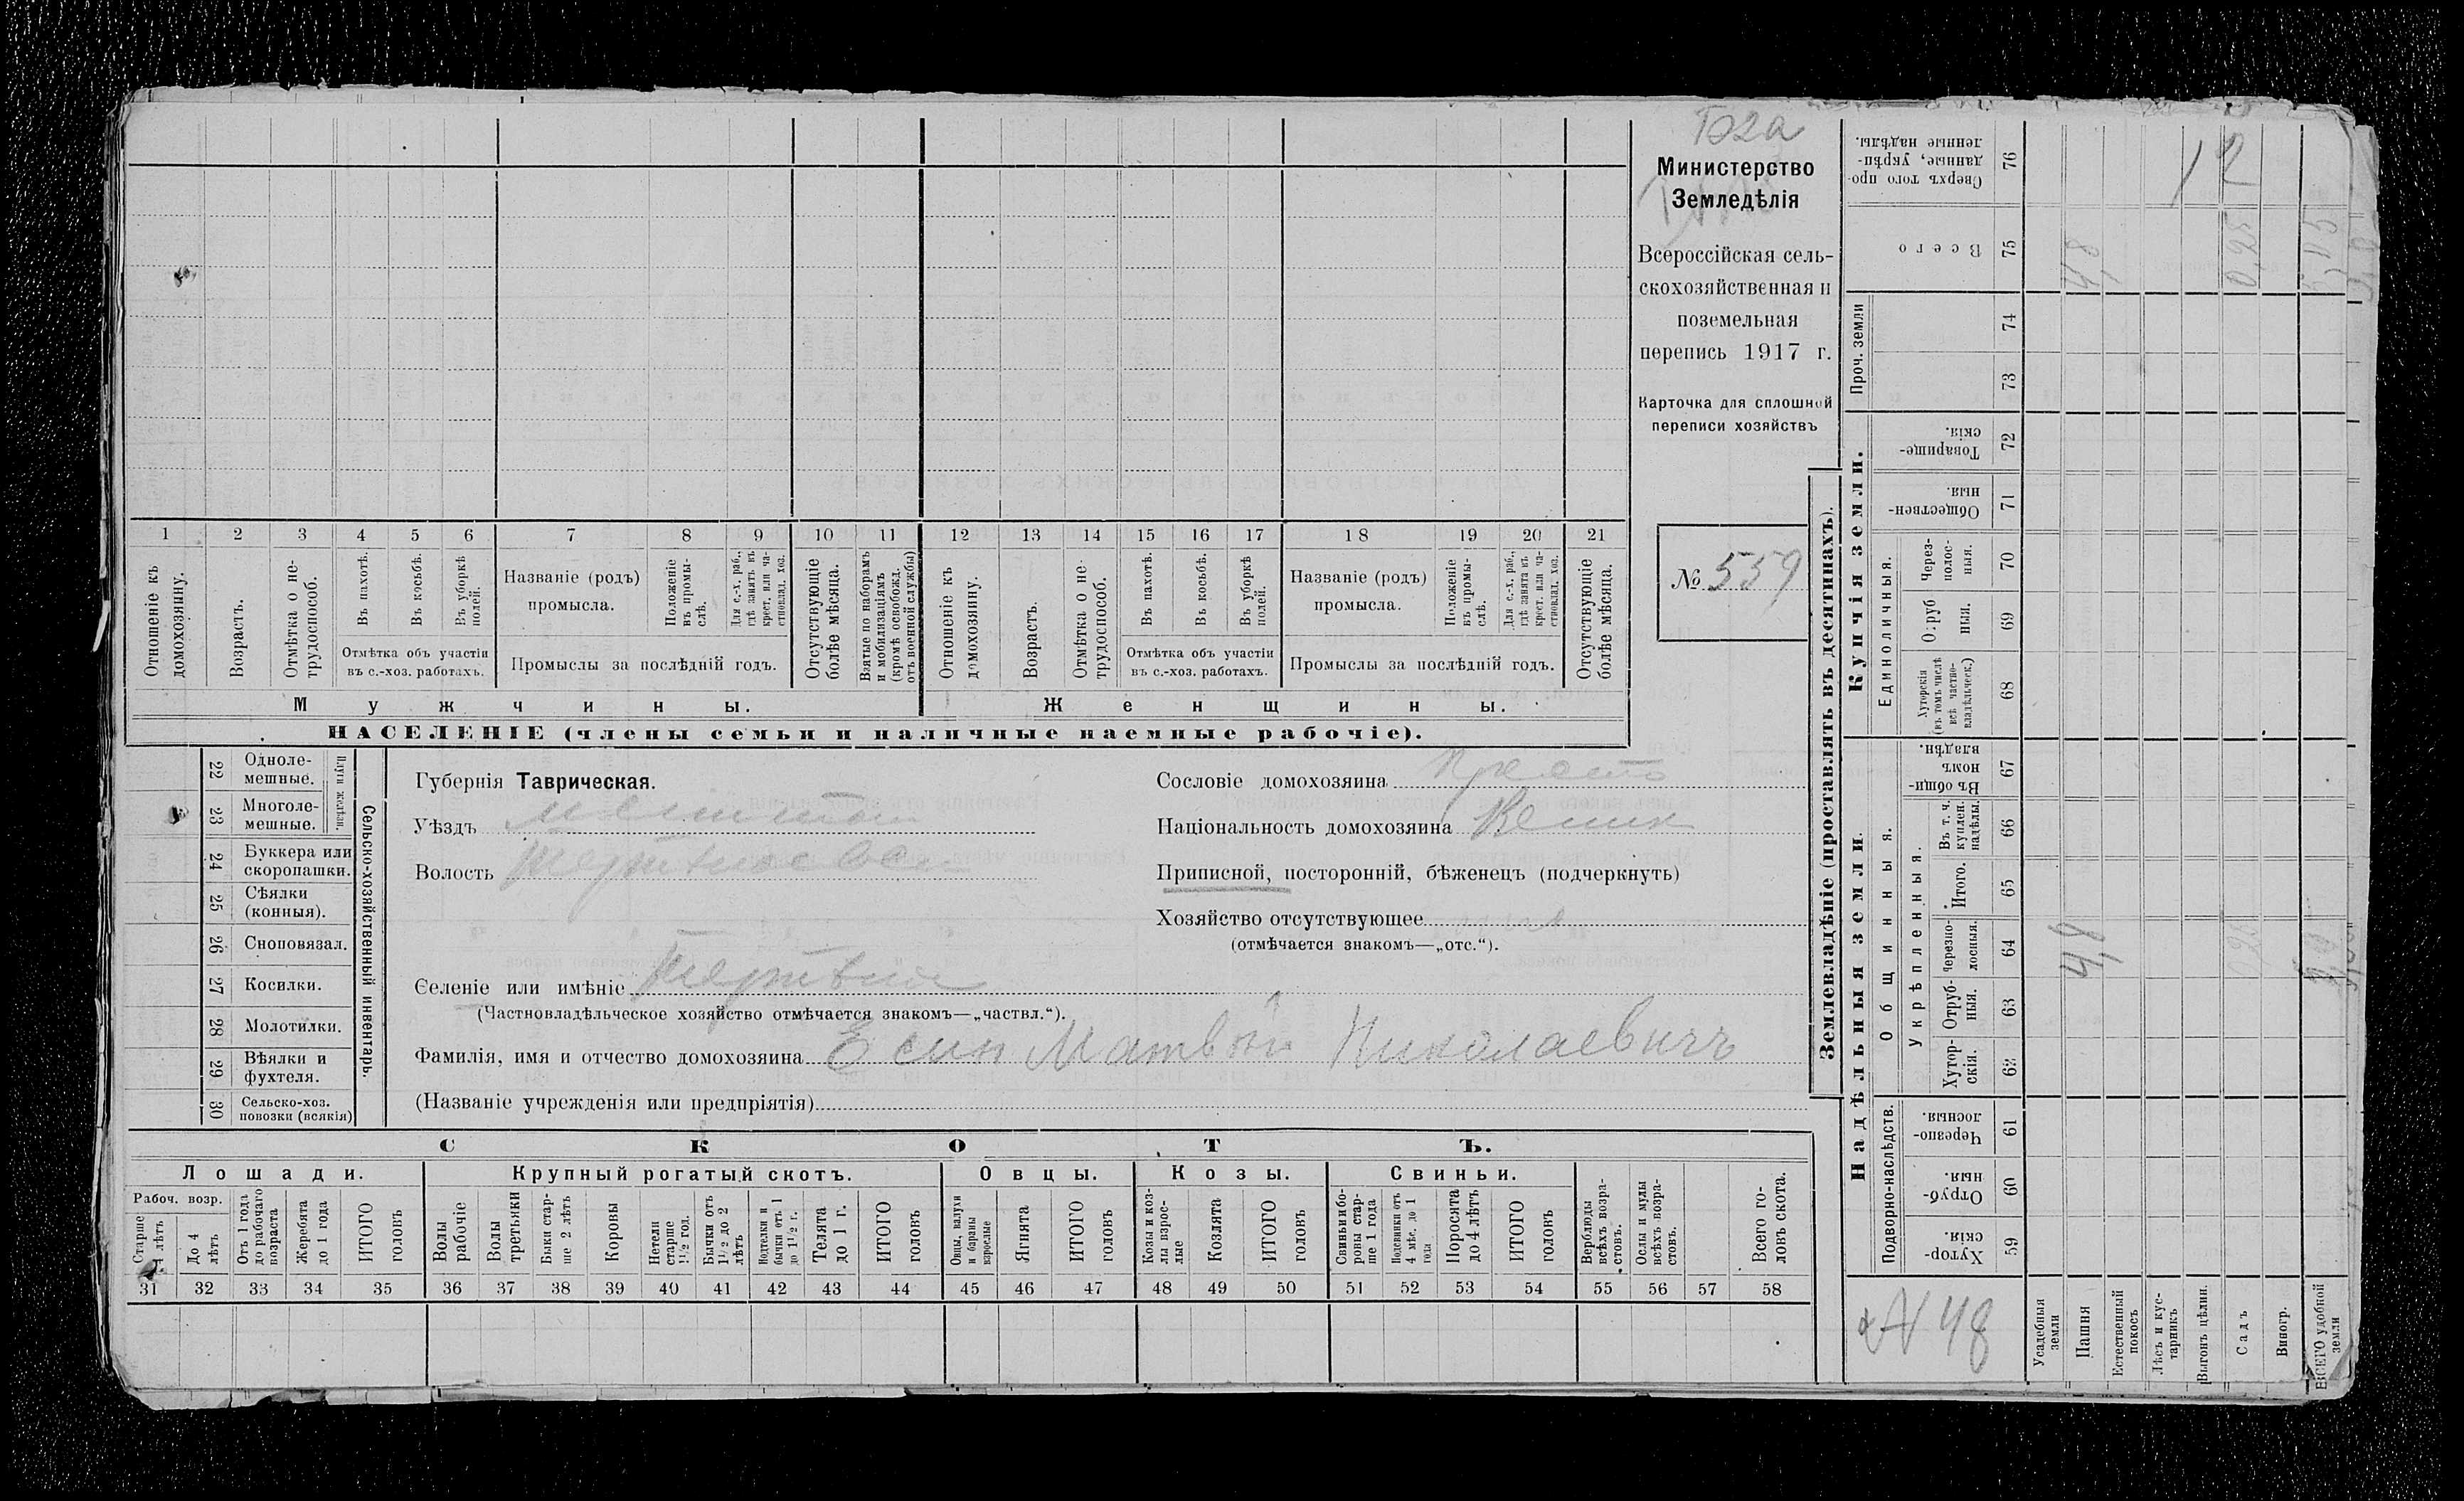 Министерство
Земледѣлія
Всероссійская сель-
скохозяйственная и
поземельная
перепись 1917 г.
Карточка для сплошной
переписи хозяйствъ
№ 559
1 2 3 4 5 6 7 8 9 10 11 12 13 14 15 16 17 18 19 20 21
Отношеніе къ домохозяину.
Возрастъ.
Отмѣтка о не-трудоспособ.
Въ пахотѣ.
Въ косьбѣ.
Въ уборкѣ полей.
Отмѣтка объ участіи
въ с.-хоз. работахъ.
Названіе (родъ)
промысла.
Положеніе въ промы-слѣ.
Для с.-х. раб., гдѣ занятъ въ крест. или ча-стновлад. хоз.
Промыслы за послѣдній годъ.
Отсутствующіе болѣе мѣсяца.
Взятые по наборамъ и мобилизаціямъ (кромѣ освобожд. отъ военной службы)
Отношеніе къ домохозяину.
Возрастъ.
Отмѣтка о не-трудоспособ.
Въ пахотѣ.
Въ косьбѣ.
Въ уборкѣ полей.
Отмѣтка объ участіи
въ с.-хоз. работахъ.
Названіе (родъ)
промысла.
Положеніе въ промы-слѣ.
Для с.-х. раб., гдѣ занята въ крест. или ча-стновлад. хоз.
Промыслы за послѣдній годъ.
Отсутствующіе болѣе мѣсяца.
Мужчины.
Женщины.
НАСЕЛЕНІЕ (члены семьи и наличные наемные рабочіе).
Сельско-хозяйственный инвентарь.
Плуги желѣзн.
22 Одноле-мешные.
23 Многоле-мешные.
24 Буккера или скоропашки.
25 Сѣялки (конныя).
26 Сноповязал.
27 Косилки.
28 Молотилки.
29 Вѣялки и фухтеля.
30 Сельско-хоз. повозки (всякія)
Губернія Таврическая.
Уѣздъ
Волость
Селеніе или имѣніе
(Частновладѣльческое хозяйство отмѣчается знакомъ—„частвл.“).
Фамилія, имя и отчество домохозяина Есин Матвѣй Николаевичъ
(Названіе учрежденія или предпріятія)
Сословіе домохозяина
Національность домохозяина
Приписной, посторонній, бѣженецъ (подчеркнуть)
Хозяйство отсутствующее
(отмѣчается знакомъ—„отс.“).
СКОТЪ.
Лошади.
Крупный рогатый скотъ.
Овцы.
Козы.
Свиньи.
Рабоч. возр.
Старше 4 лѣтъ
До 4 лѣтъ
Отъ 1 года до рабочаго возраста
Жеребята до 1 года
ИТОГО головъ
Волы рабочіе
Волы третьяки
Быки стар-ше 2 лѣтъ
Коровы
Нетели старше 1½ год.
Бычки отъ 1½ до 2 лѣтъ
Подтелки и бычки отъ 1 до 1½ г.
Телята до 1 г.
ИТОГО головъ
Овцы, валухи и бараны взрослые
Ягнята
ИТОГО головъ
Козы и коз-лы взрос-лые
Козлята
ИТОГО головъ
Свиньи и бо-ровы стар-ше 1 года
Подсвинки отъ 4 мѣс. до 1 года
Поросята до 4 лѣтъ
ИТОГО головъ
Верблюды всѣхъ возра-стовъ.
Ослы и мулы всѣхъ возра-стовъ.
Всего го-ловъ скота.
31 32 33 34 35 36 37 38 39 40 41 42 43 44 45 46 47 48 49 50 51 52 53 54 55 56 57 58
Землевладѣніе (проставлять въ десятинахъ).
Надѣльныя земли.
Купчія земли.
Проч. земли
Подворно-наслѣдств.
Общинныя.
Укрѣпленныя.
Единоличныя.
59 Хутор-скія.
60 Отруб-ныя.
61 Черезпо-лосныя.
62 Хутор-скія.
63 Отруб-ныя.
64 Черезпо-лосныя.
65 Итого.
66 Въ т. ч. куплен. надѣлы.
67 Въ общи-номъ владѣн.
68 Хуторскія (въ томъ числѣ всѣ частно-владѣльческ.)
69 Отруб ныя.
70 Через-полос-ныя.
71 Обществен-ныя.
72 Товарище-скія.
73
74
75 Всего
76 Сверхъ того про-данные, укрѣп-ленные надѣлы.
Усадебныя земли
Пашня
Естественный покосъ
Лѣсъ и кус-тарникъ
Выгонъ цѣлин.
Садъ
Виногр.
ВСЕГО удобной земли
4,8
4,8
0,25
12